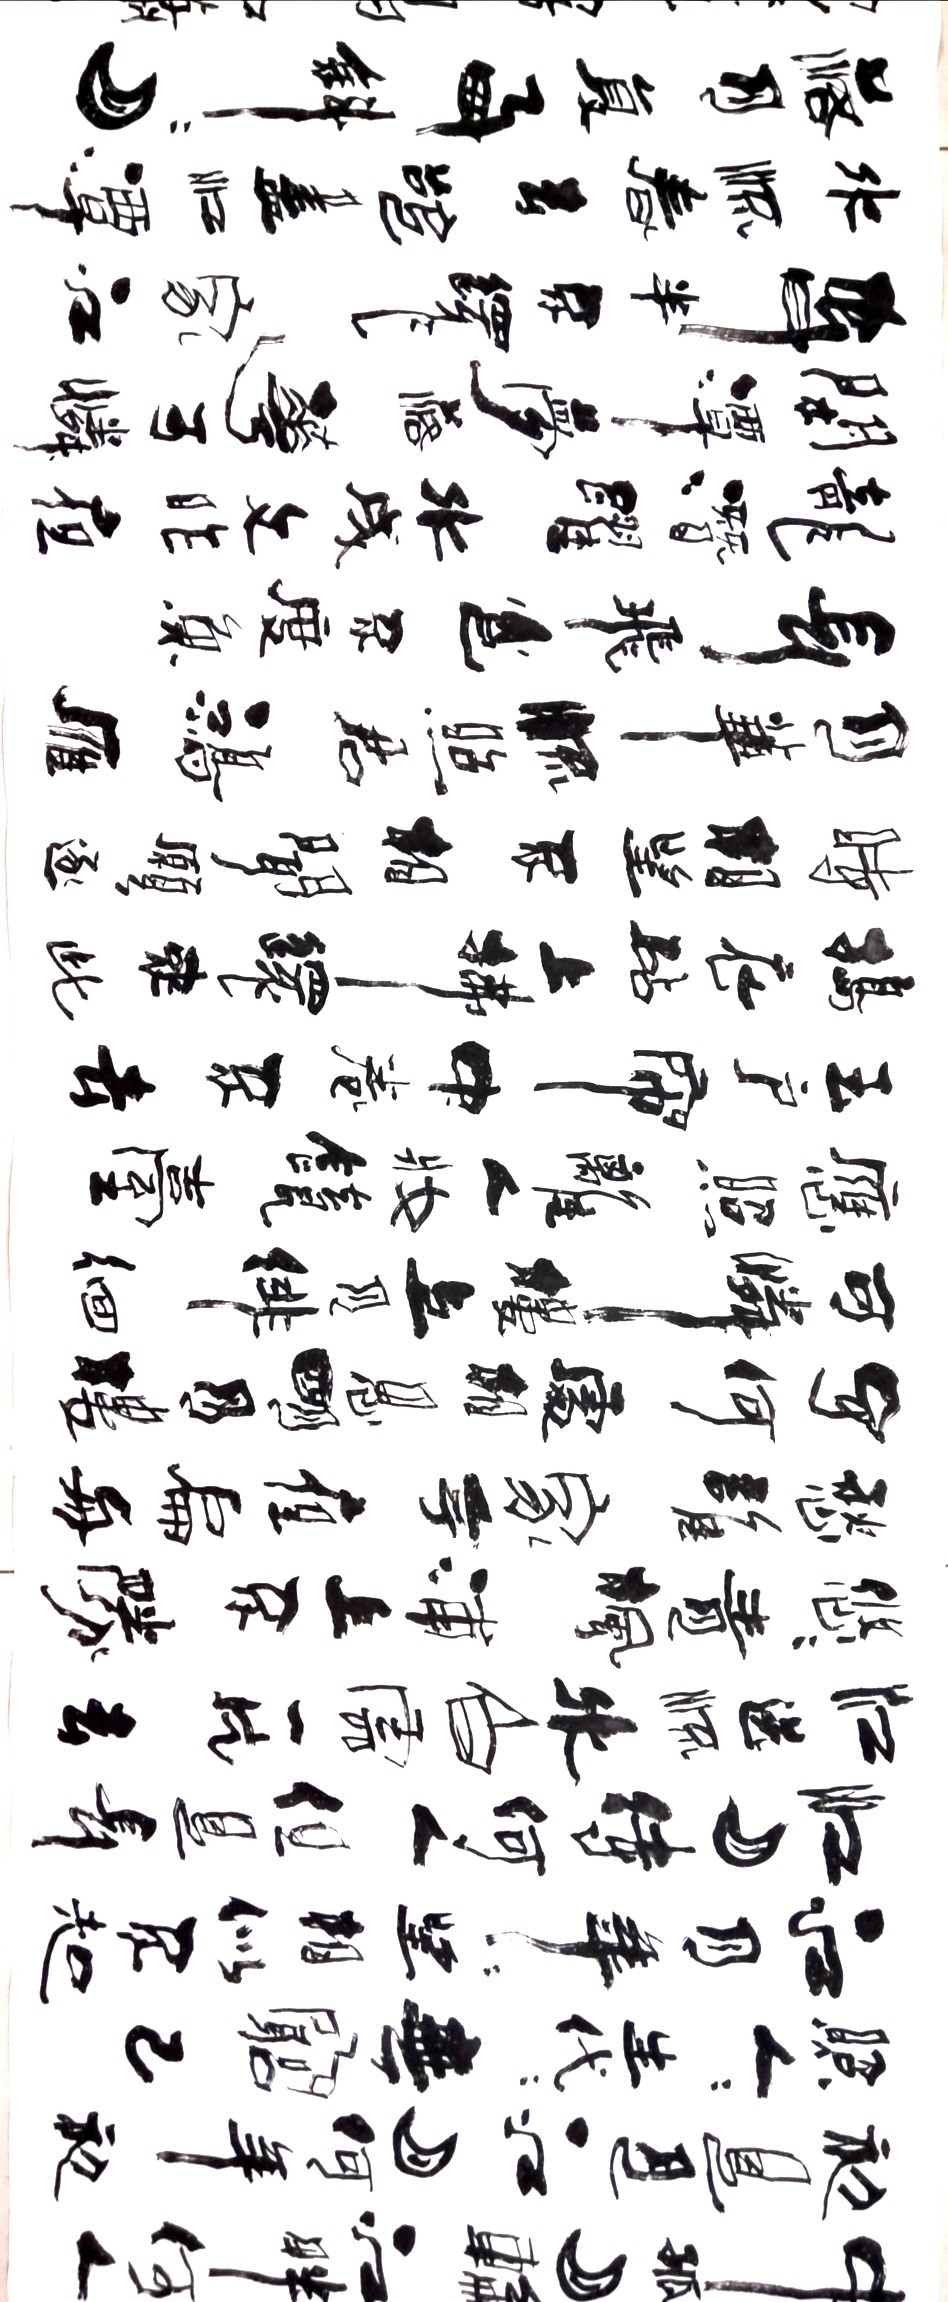 中孤月輪江畔何人
初見月江月何年初
照人:生代:無窮已
江月年:望相似不知
江月待何人但見長
江送流水白雲一片去
悠:青楓浦上不勝
愁誰家今夜扁舟
子何處相思明月樓
可憐樓上月徘徊
應照離人妝鏡臺
玉戶簾中卷不去
搗衣砧上拂還來此
時相望不相聞願逐
月華流照君鴻雁
長飛光不度魚
龍潛躍水成文昨夜
閒潭夢落花可憐
春半不還家江
水流春去欲盡江潭
落月復西斜:月